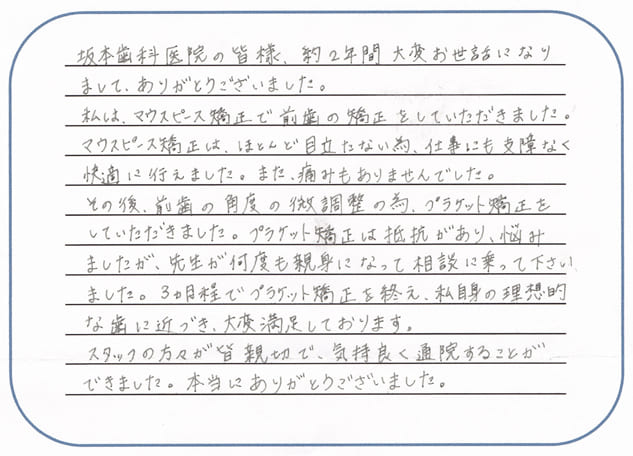 坂本歯科医院の皆様、約2年間大変お世話になり
まして、ありがとうございました。
私は、マウスピース矯正で前歯の矯正をしていただきました。
マウスピース矯正は、ほとんど目立たない為、仕事にも支障なく
快適に行えました。また、痛みもありませんでした。
その後、前歯の角度の微調整の為、ブラケット矯正を
していただきました。ブラケット矯正は抵抗があり、悩み
ましたが、先生が何度も親身になって相談に乗って下さい
ました。3ヵ月程でブラケット矯正を終え、私自身の理想的
な歯に近づき、大変満足しております。
スタッフの方々が皆親切で、気持良く通院することが
できました。本当にありがとうございました。